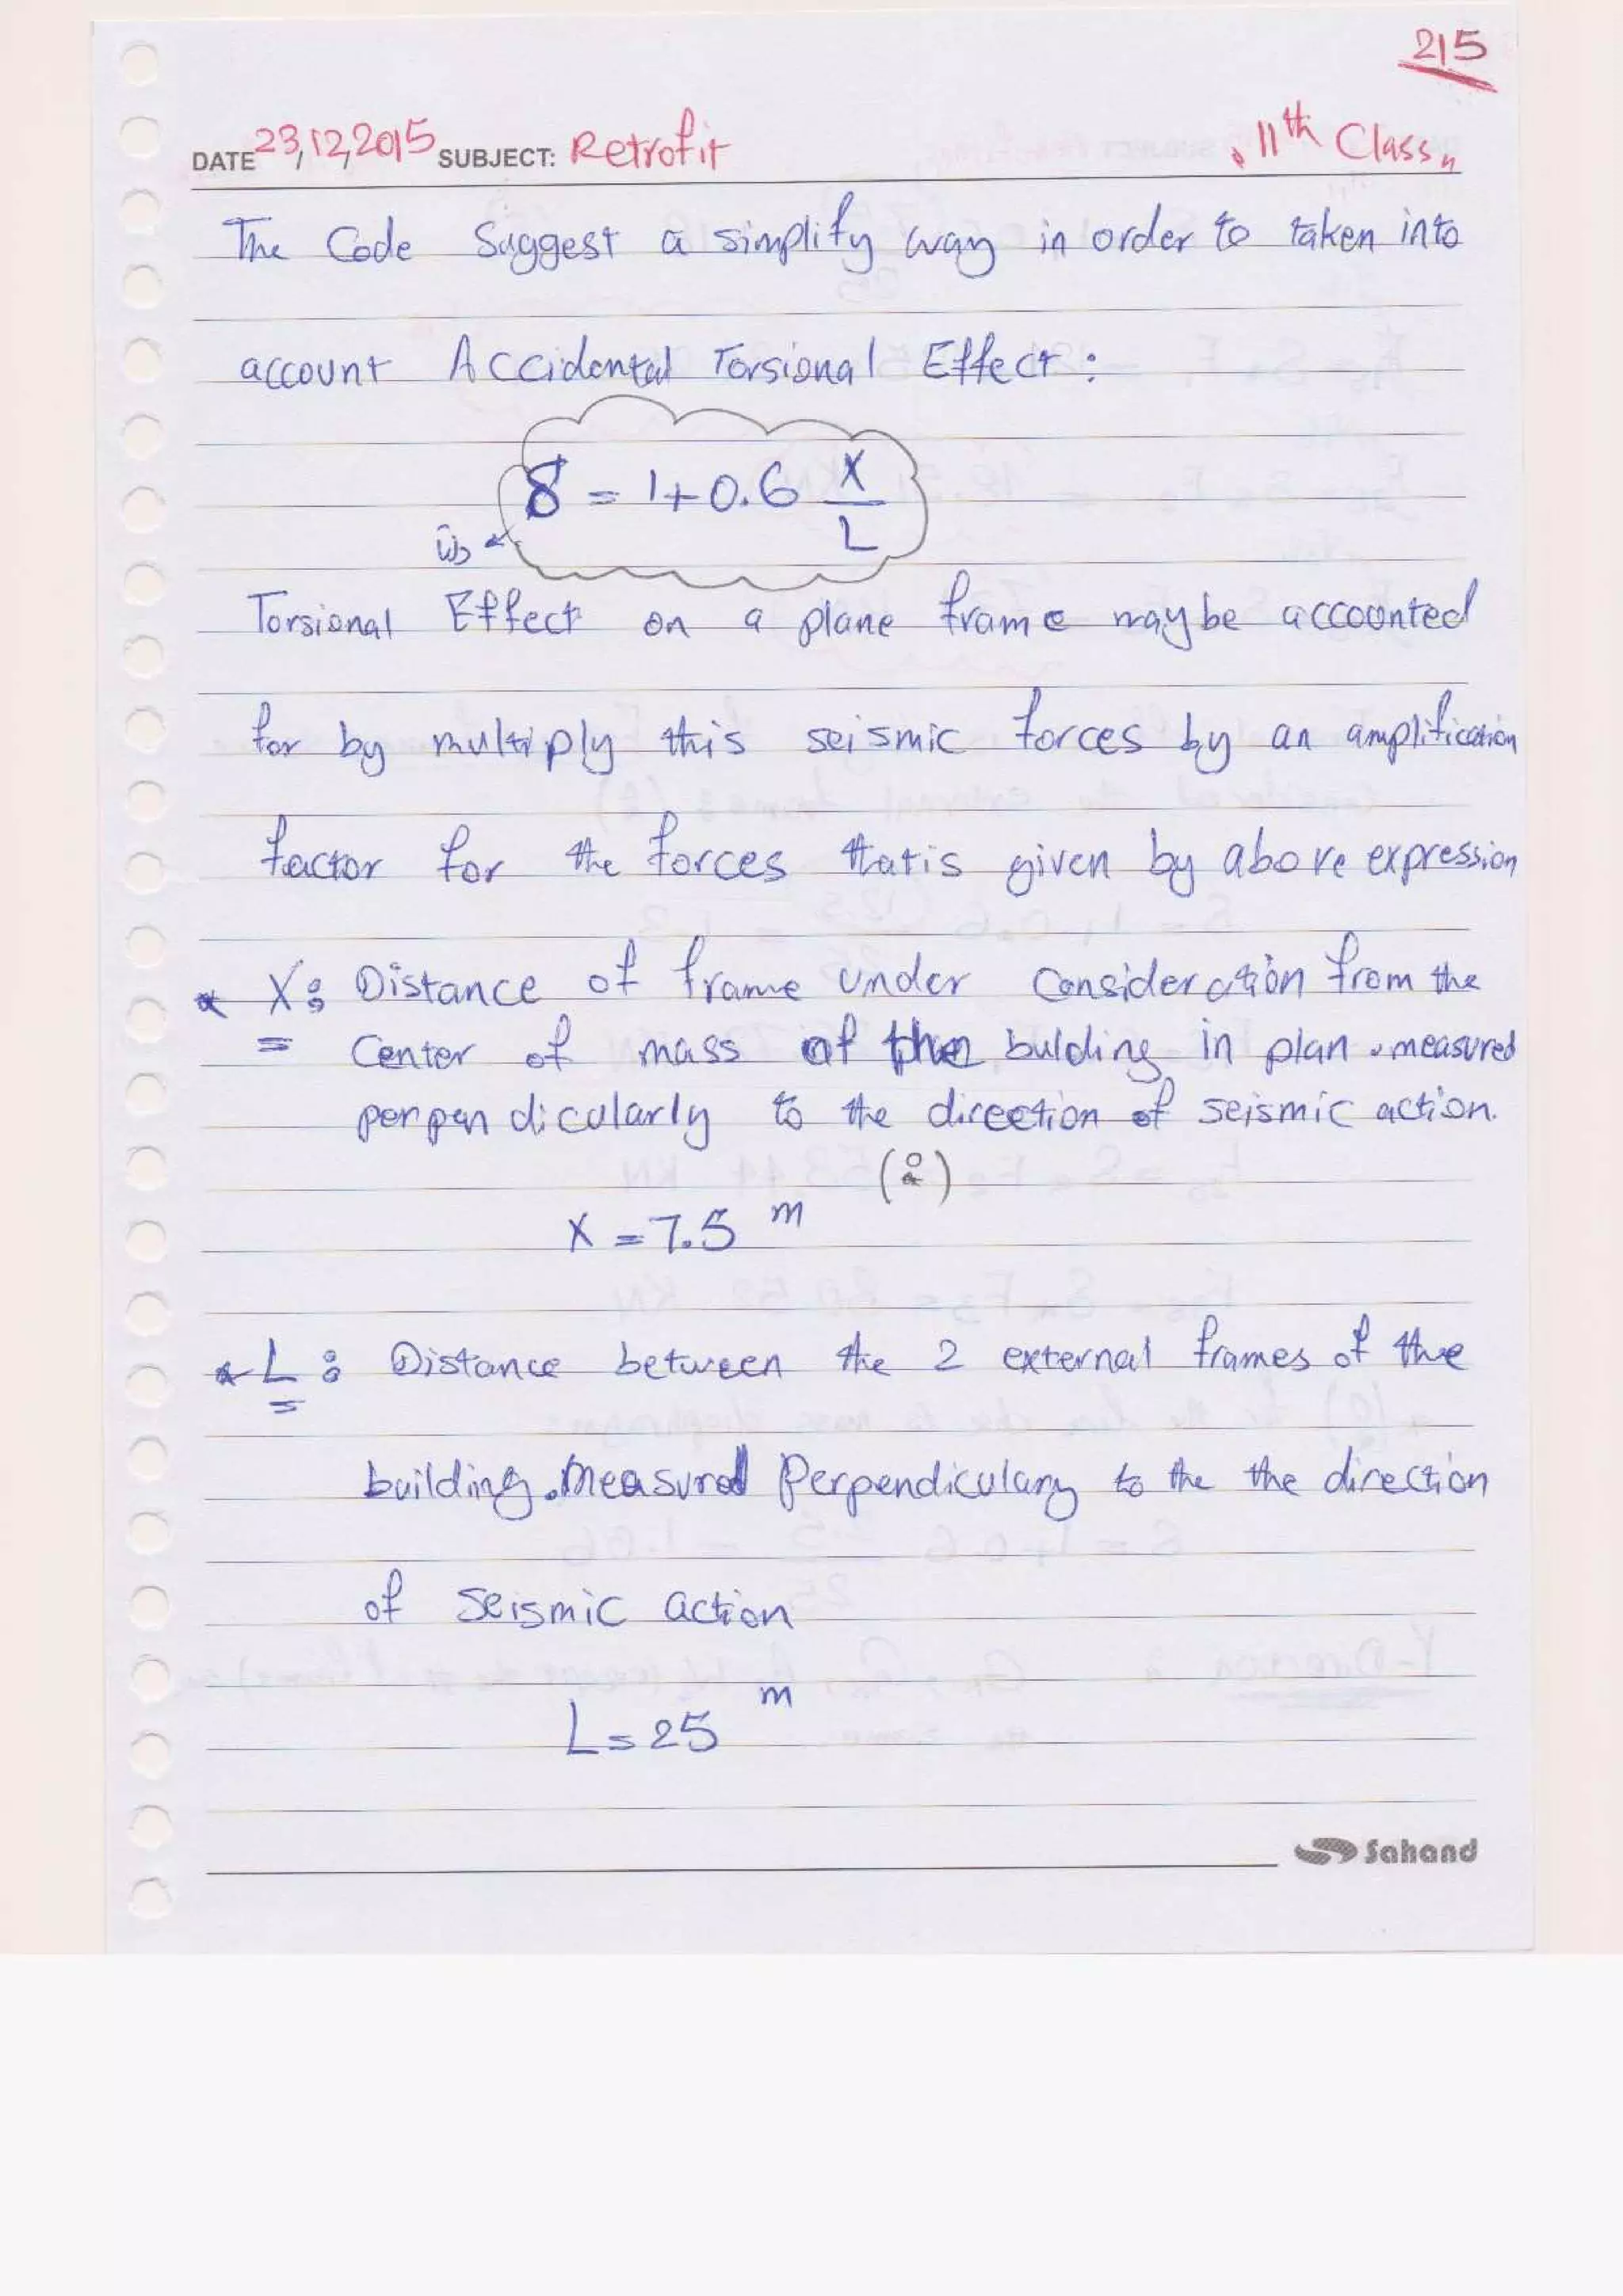 215
DATE 23,12,2015 SUBJECT: Retrofit "11th Class"
The Code Suggest a simplify way in order to taken into
account Accidental Torsional Effect :
δ = 1+0.6 X/L
Torsional Effect on a plane frame may be accounted
for by multiply this seismic forces by an amplification
factor for the forces that is given by above expression
* X: Distance of frame under Consideration from the
Center of mass of the bulding in plan . measured
perpendicularly to the direction of seismic action.
X = 7.5 m
* L : Distance between the 2 external frames of the
building . Measured Perpendiculary to the the direction
of seismic action
L = 25 m
Sahand